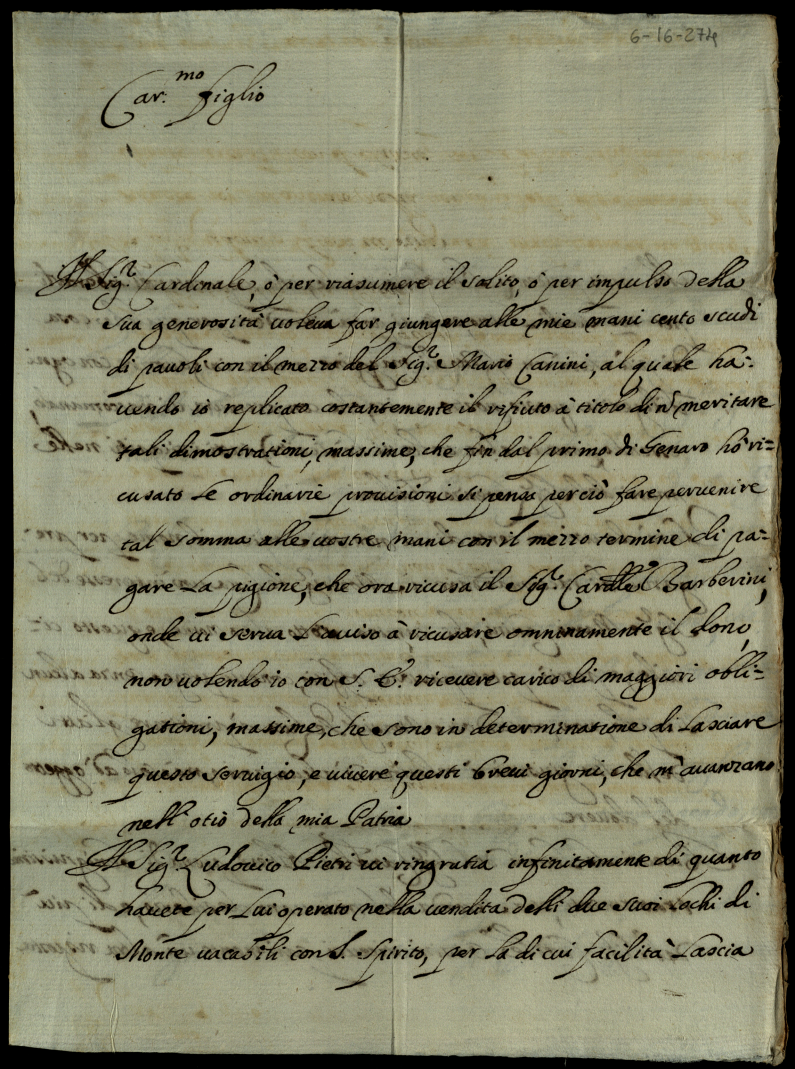 6-16-274
Car.mo figlio
Il Sig.r Cardinale, ò per riasumere il solito, ò per impulso della
sua generosità voleva far giungere alle mie mani cento scudi
di pavoli con il mezzo del Sig.r Mario Canini, al quale ha-
vendo io replicato costantemente il rifiuto à titolo di nõ meritare
tali dimostrationi, massime, che fin dal primo di Genaro hò ri-
cusato le ordinarie provisioni si pensa perciò fare pervenire
tal somma alle vostre mani con il mezzo termine di pa-
gare la pigione, che ora ricusa il Sig.r Cavalle Barberini,
onde vi serva l'aviso à ricusare omninamente il dono,
non volendo io con S. E. ricevere carico di maggiori obli-
gationi, massime, che sono in determinatione di lasciare
questo servigio, e vivere questi brevi giorni, che m'avanzano
nell'otio della mia Patria
Il Sig.r Ludovico Pietri vi ringratia infinitamente di quanto
havete per lui operato nella vendita delli due suoi lochi di
Monte vacabili con S. Spirito, per la di cui facilità lascia